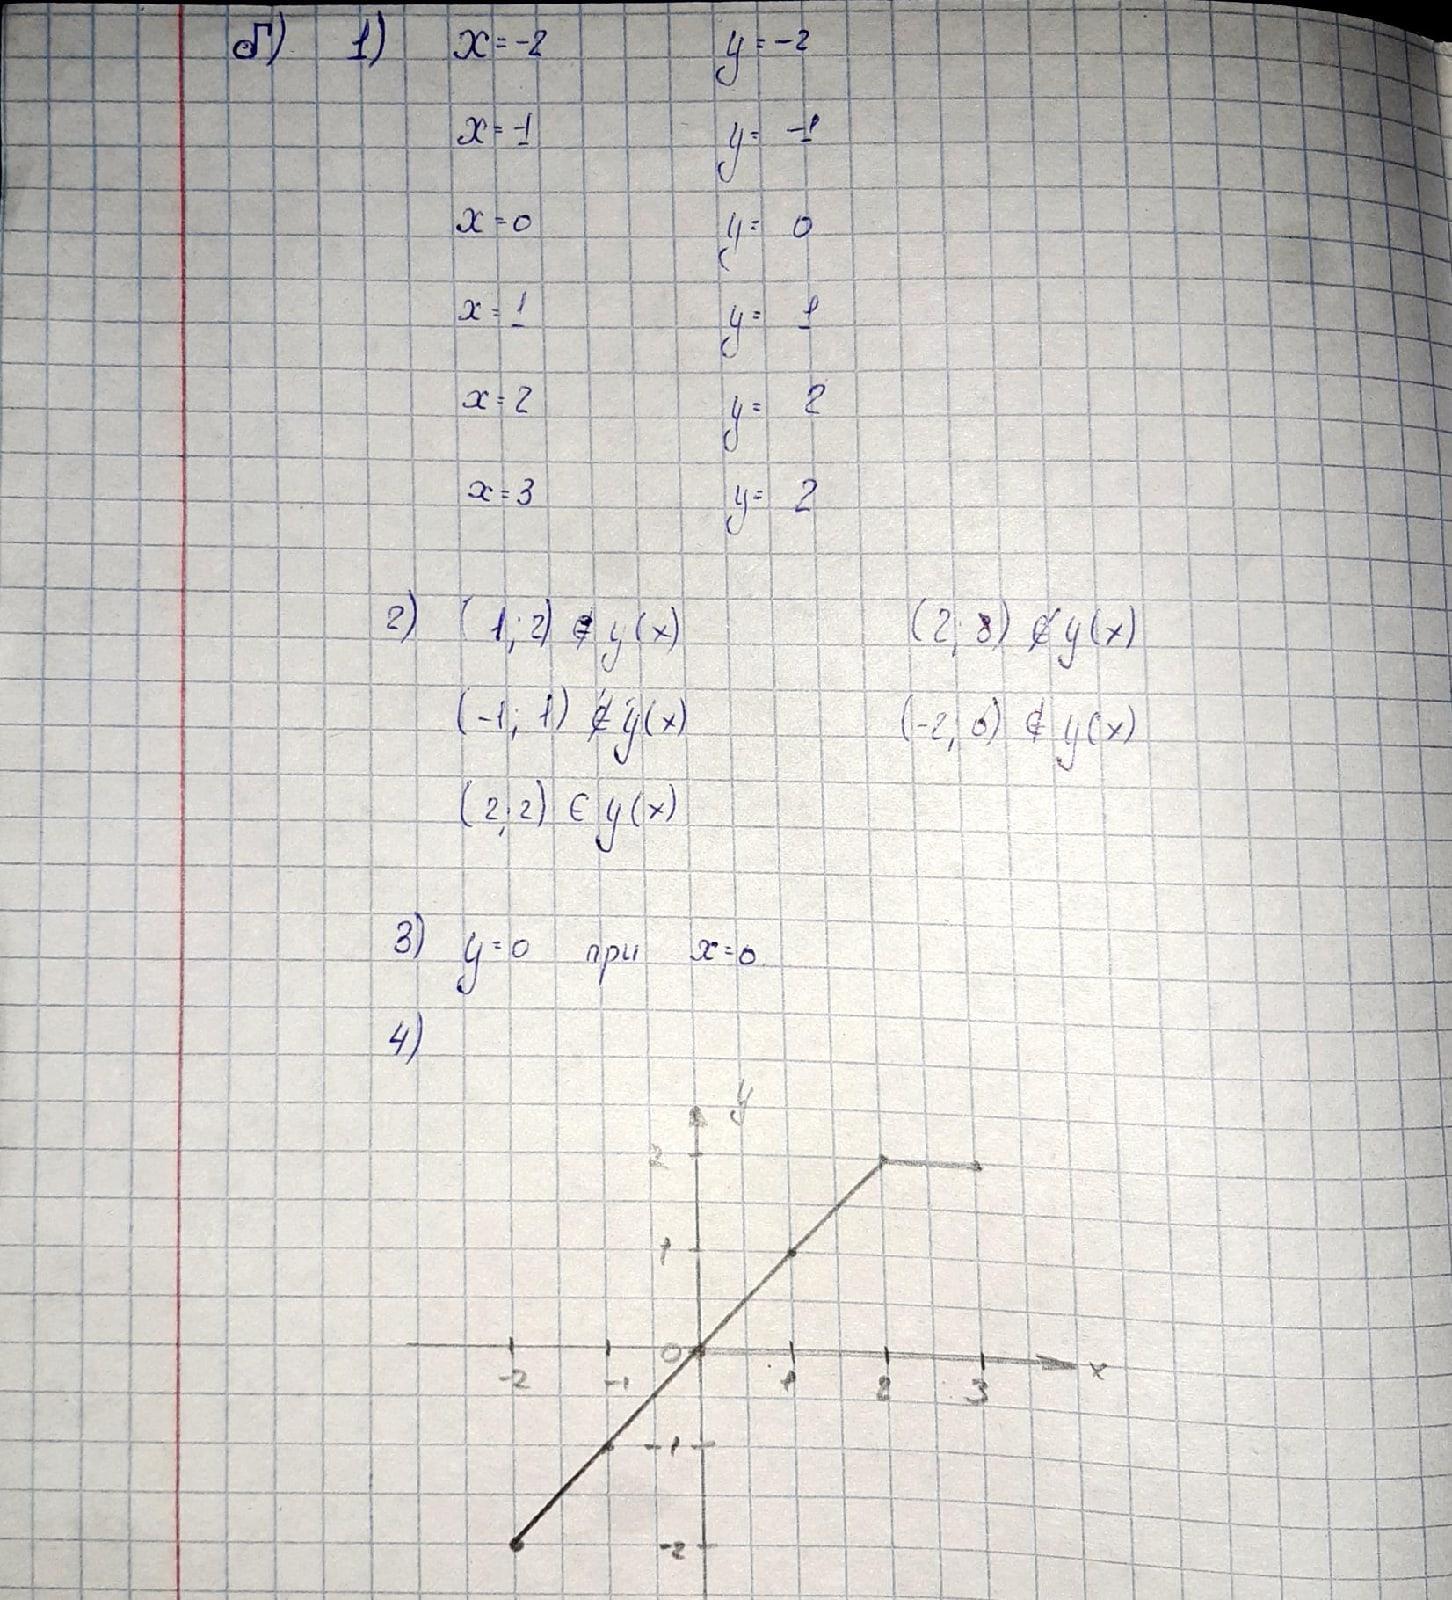 б) 1) x=-2 y=-2
x=-1 y= -1
x=0 y= 0
x=1 y= 1
x=2 y= 2
x=3 y= 2
2) (1; 2) ∉ y(x) (2; 3) ∉ y(x)
(-1; 1) ∉ y(x) (-2; 0) ∉ y(x)
(2; 2) ∈ y(x)
3) y=0 при x=0
4)
y
2
1
0
-2 -1 1 2 3 x
-1
-2